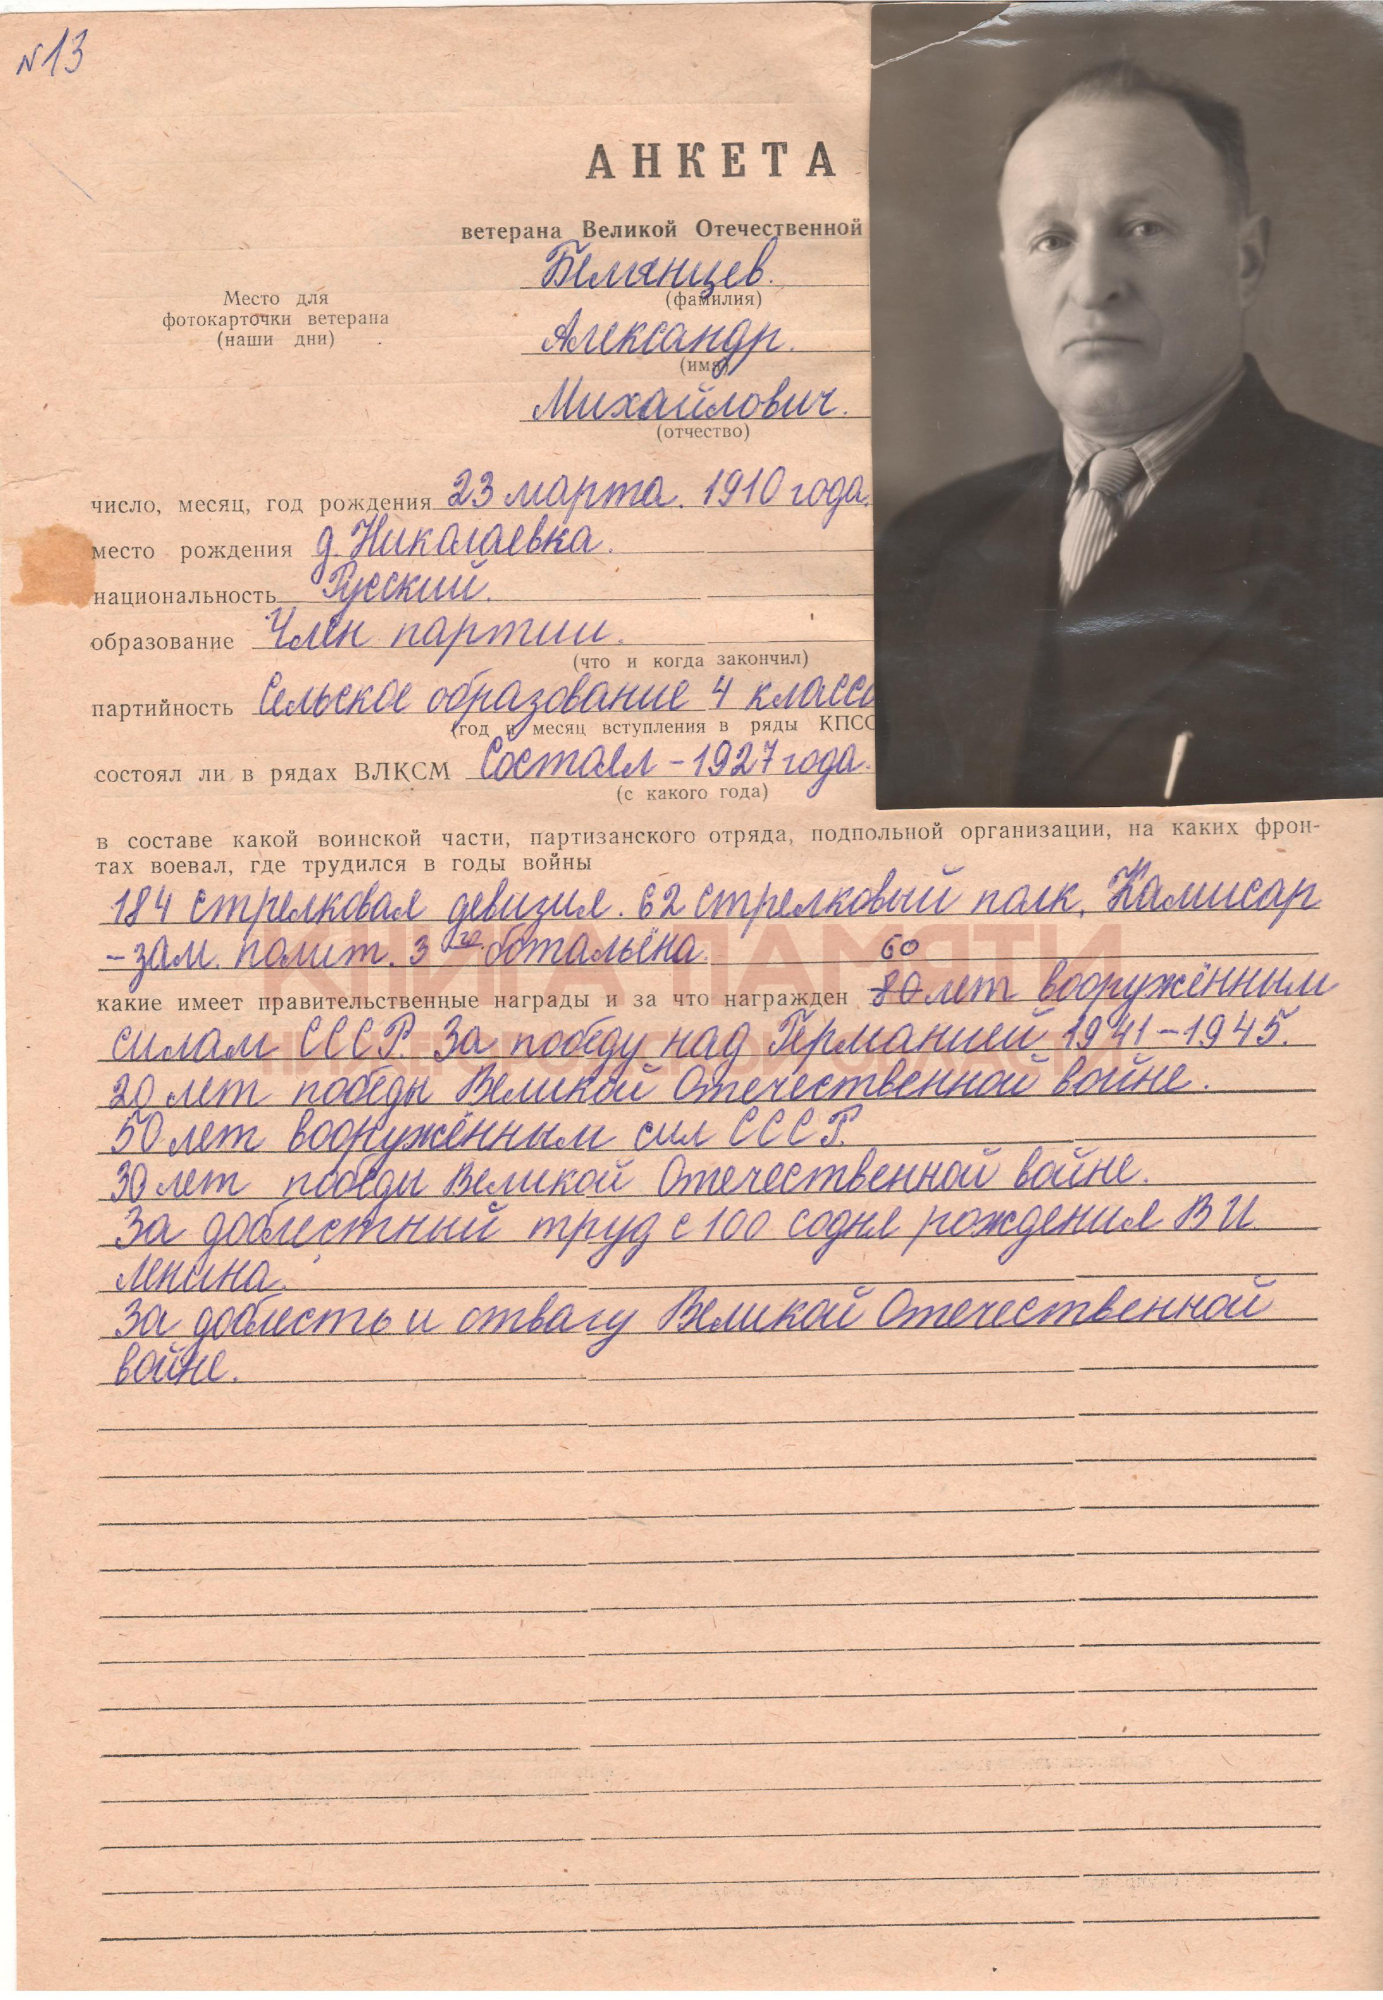 №13
АНКЕТА
ветерана Великой Отечественной
Белянцев.
(фамилия)
Место для
фотокарточки ветерана
(наши дни)
Александр.
(имя)
Михайлович.
(отчество)
число, месяц, год рождения 23 марта. 1910 года.
место рождения д. Николаевка.
национальность Русский.
образование Член партии.
(что и когда закончил)
партийность Сельское образование 4 класса
(год и месяц вступления в ряды КПСС
состоял ли в рядах ВЛКСМ Состоял - 1927 года.
(с какого года)
в составе какой воинской части, партизанского отряда, подпольной организации, на каких фрон-
тах воевал, где трудился в годы войны
184 стрелковая девизия. 62 стрелковый полк, Камисар
- зам. полит. 3го ботальёна.
60
какие имеет правительственные награды и за что награжден 80 лет вооружённым
силам СССР. За победу над Германией 1941-1945.
20 лет победы Великой Отечественной войне.
50 лет вооружённым сил СССР.
30 лет победы Великой Отечественной войне.
За доблестный труд с 100 содня рождения В И
Ленина.
За доблесть и отвагу Великой Отечественной
войне.
КНИГА ПАМЯТИ
НИЖЕГОРОДСКОЙ ОБЛАСТИ